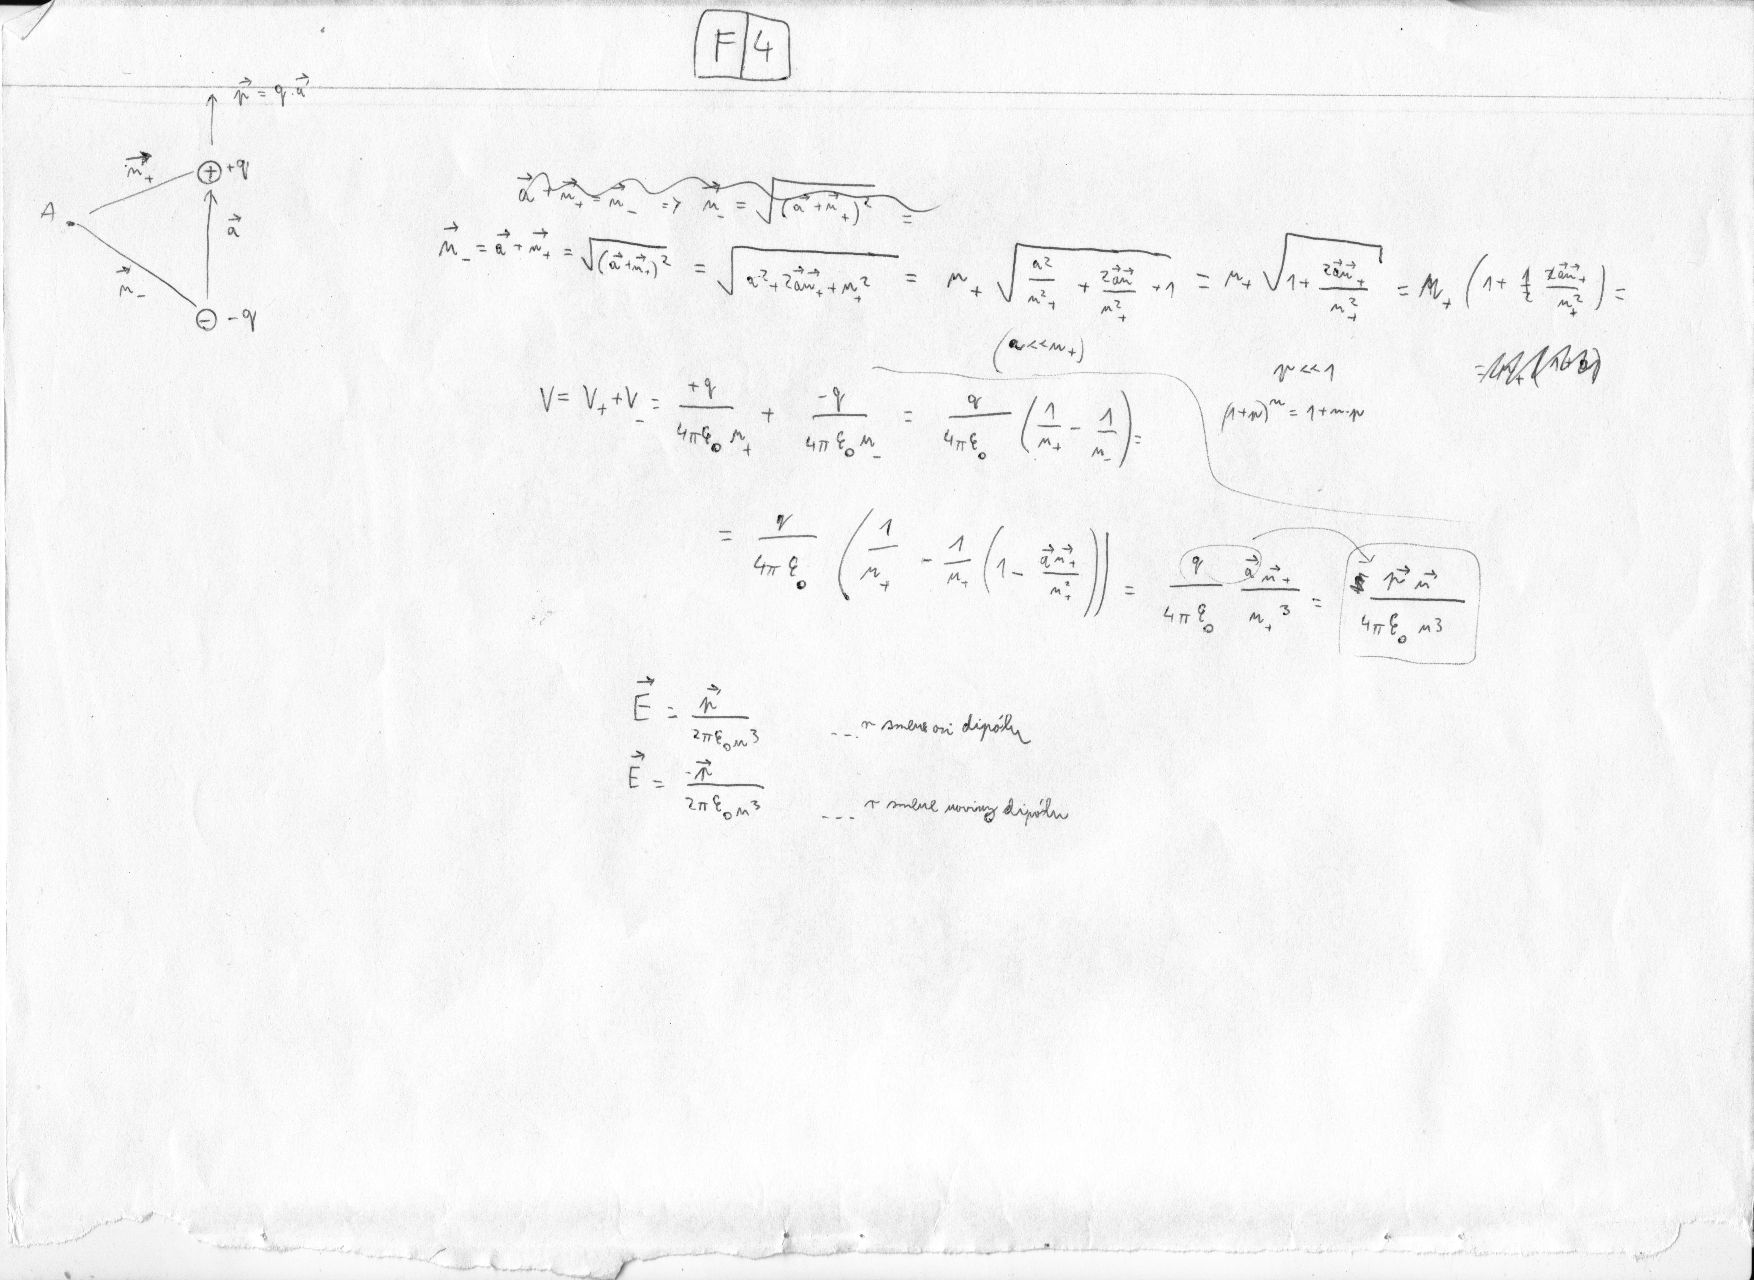 F 4
p⃗ = q·a⃗
r⃗₊
+ +q
A
a⃗
r⃗₋
− −q
a⃗ + r⃗₊ = r⃗₋ => r⃗₋ = √(a⃗ + r⃗₊)² =
r⃗₋ = a⃗ + r⃗₊ = √(a⃗+r⃗₊)² = √(a² + 2a⃗r⃗₊ + r₊²) = r₊ √(a²/r₊² + 2a⃗r⃗/r₊² + 1) = r₊ √(1 + 2a⃗r⃗₊/r₊²) = r₊ (1 + 1/2 2a⃗r⃗₊/r₊²) =
(a << r₊)
p << 1
(1+p)ⁿ = 1 + n·p
V = V₊ + V₋ = +q/4πε₀r₊ + −q/4πε₀r₋ = q/4πε₀ (1/r₊ − 1/r₋) =
= q/4πε₀ (1/r₊ − 1/r₊ (1 − a⃗r⃗₊/r₊²)) = q/4πε₀ a⃗r⃗₊/r₊³ = p⃗ r⃗/4πε₀ r³
E⃗ = p⃗/2πε₀r³ ... v smere osi dipólu
E⃗ = −p⃗/2πε₀r³ ... v smere roviny dipólu